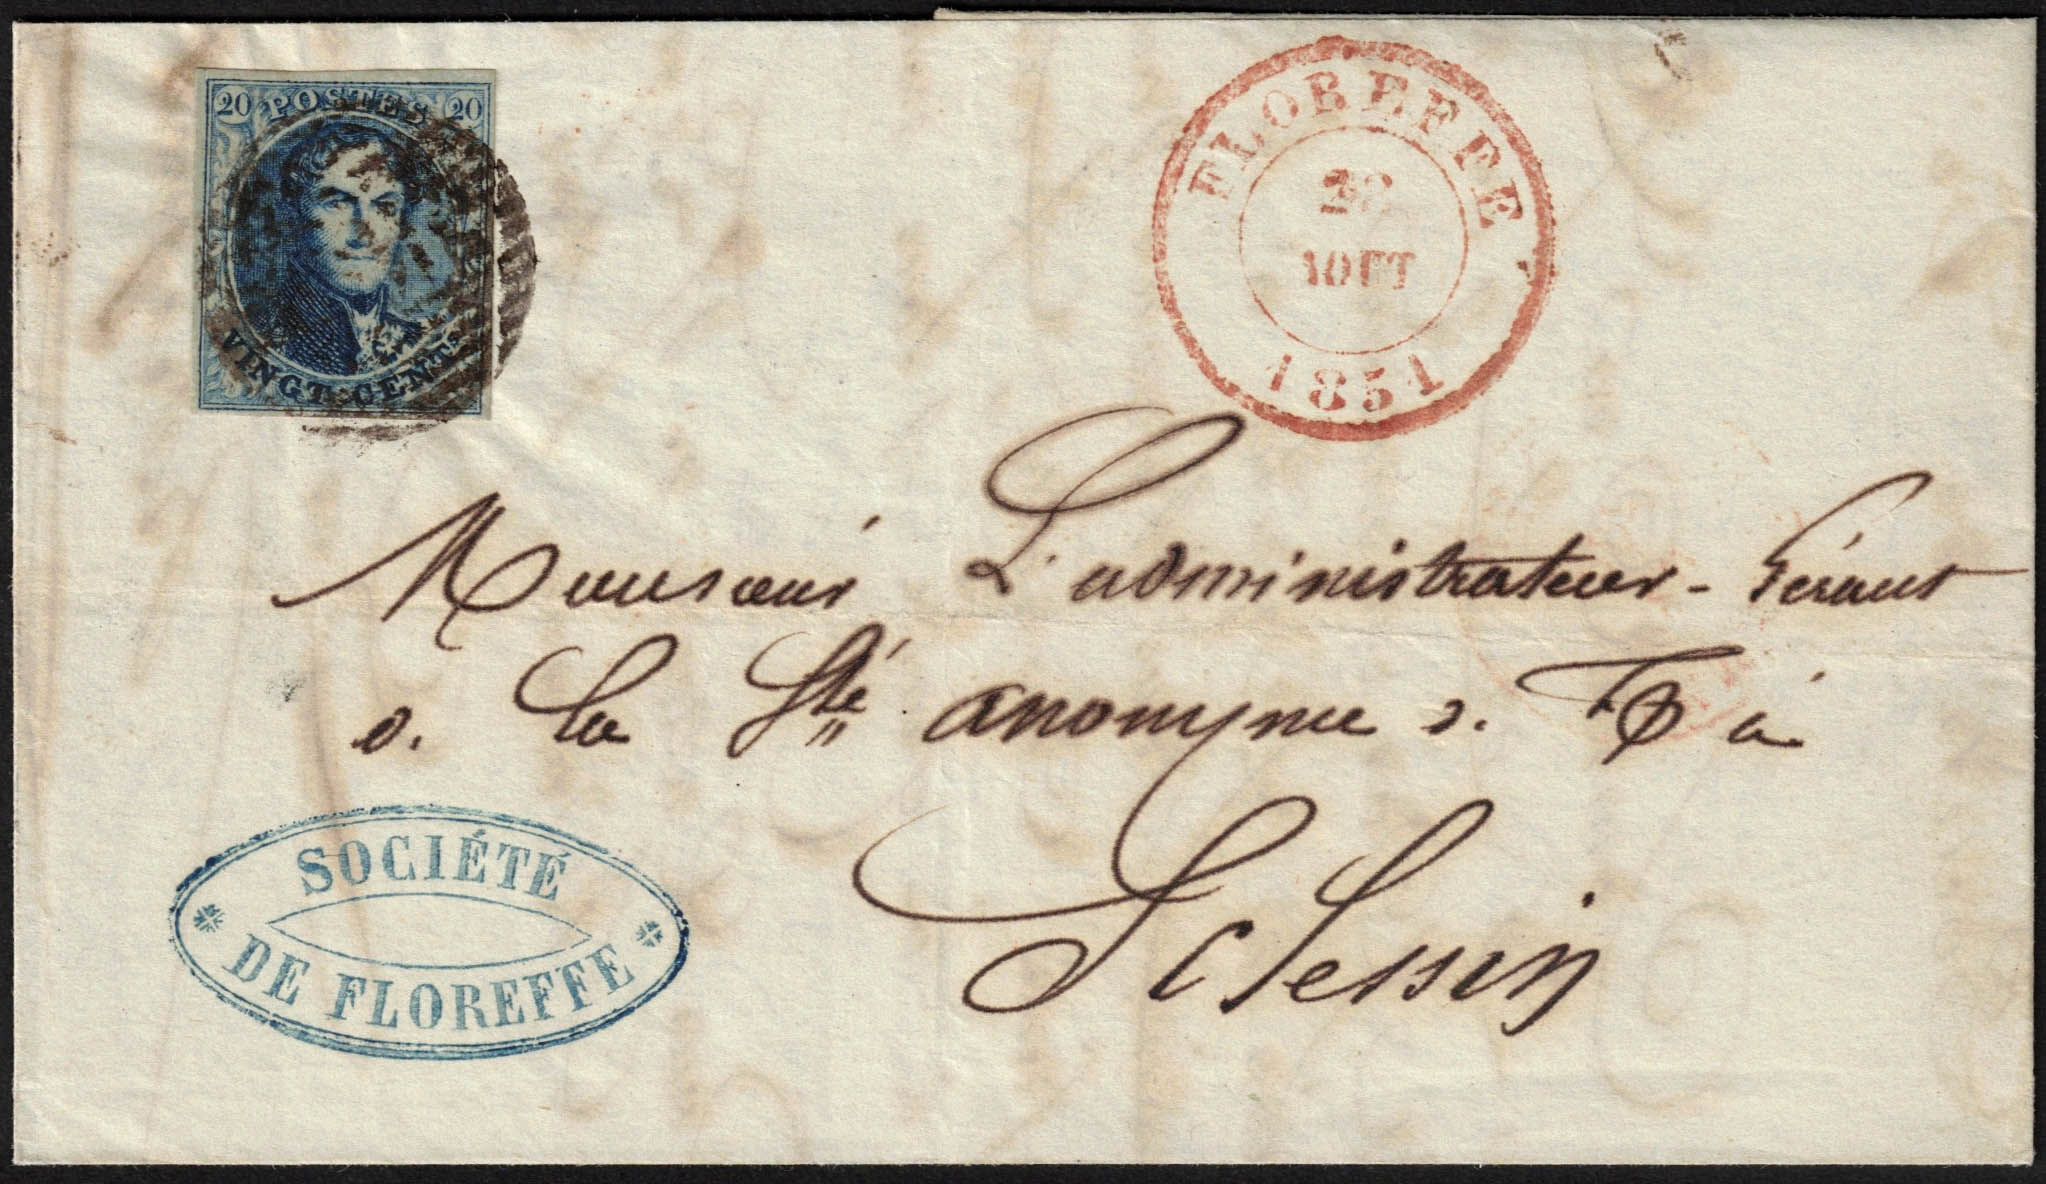 20 POSTES 20
VINGT CENTS
FLOREFFE
AOUT
1851
Monsieur L'administrateur-Gérant
d. la Sté anonyme d. à
Sclessin
SOCIÉTÉ
DE FLOREFFE